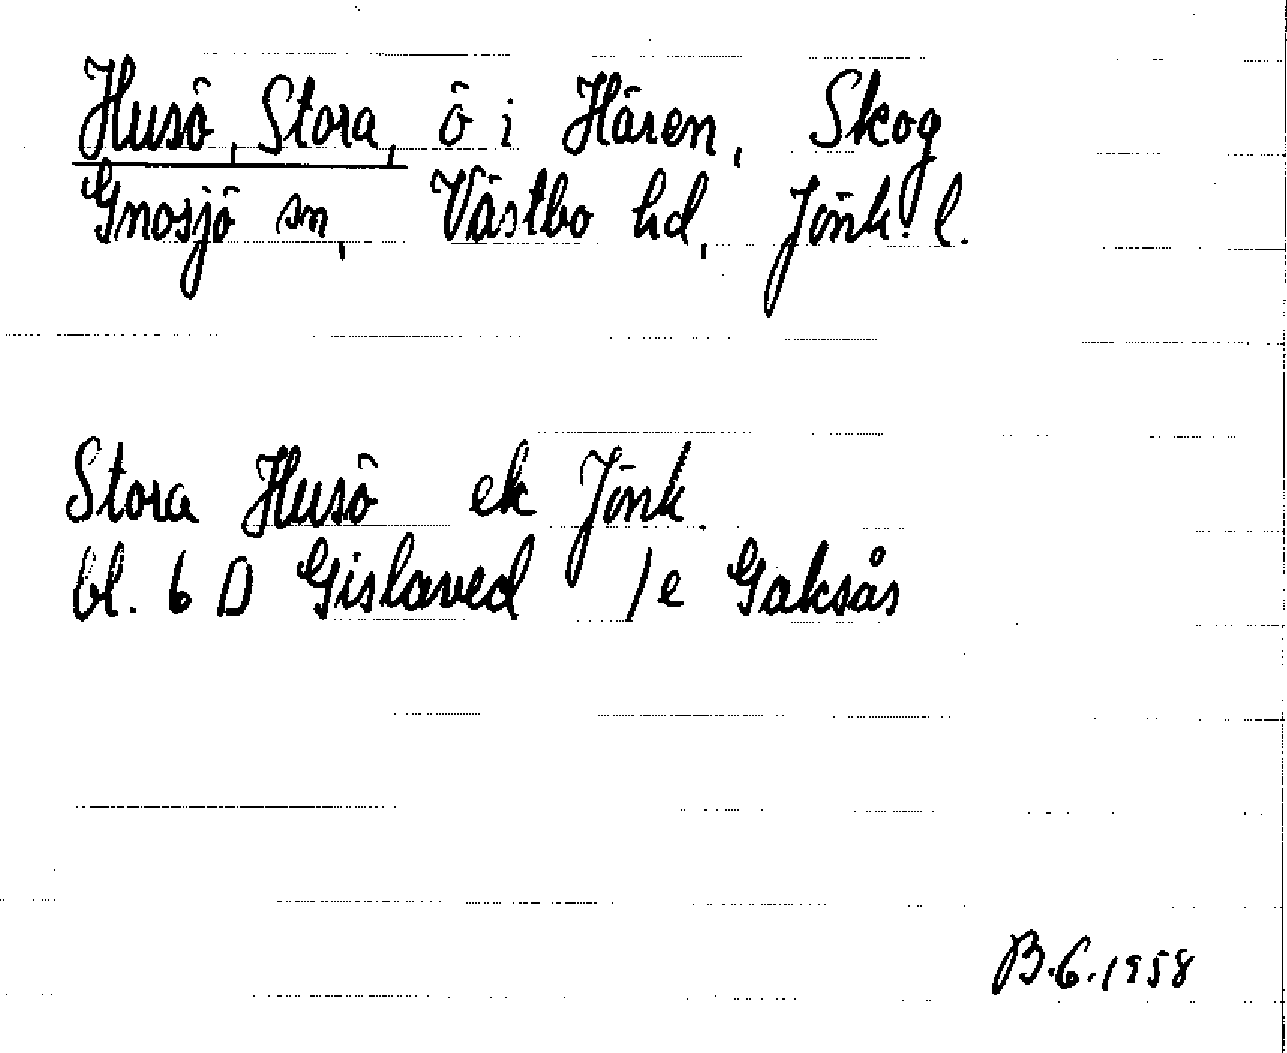 Husö, Stora, ö i Hären, Skog
Gnosjö sn, Västbo hd, Jönk. l.
Stora Husö ek Jönk.
bl. 6 D Gislaved 1 e Gaksås
B.G. 1958